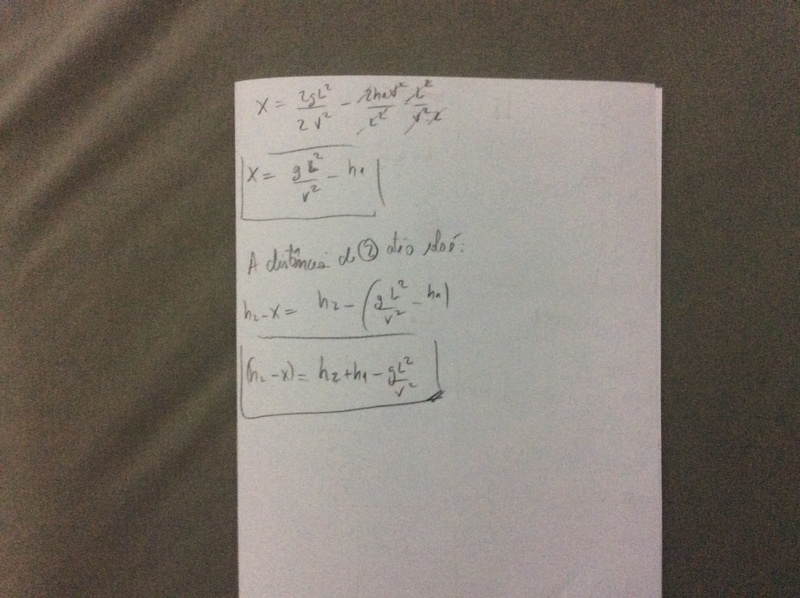 x = 2gL²/2v² - 2h₁v²/L² L²/v²2
x = gL²/v² - h₁
A distância d ② até solo:
h₂-x = h₂ - (gL²/v² - h₁)
(h₂-x) = h₂+h₁ - gL²/v²